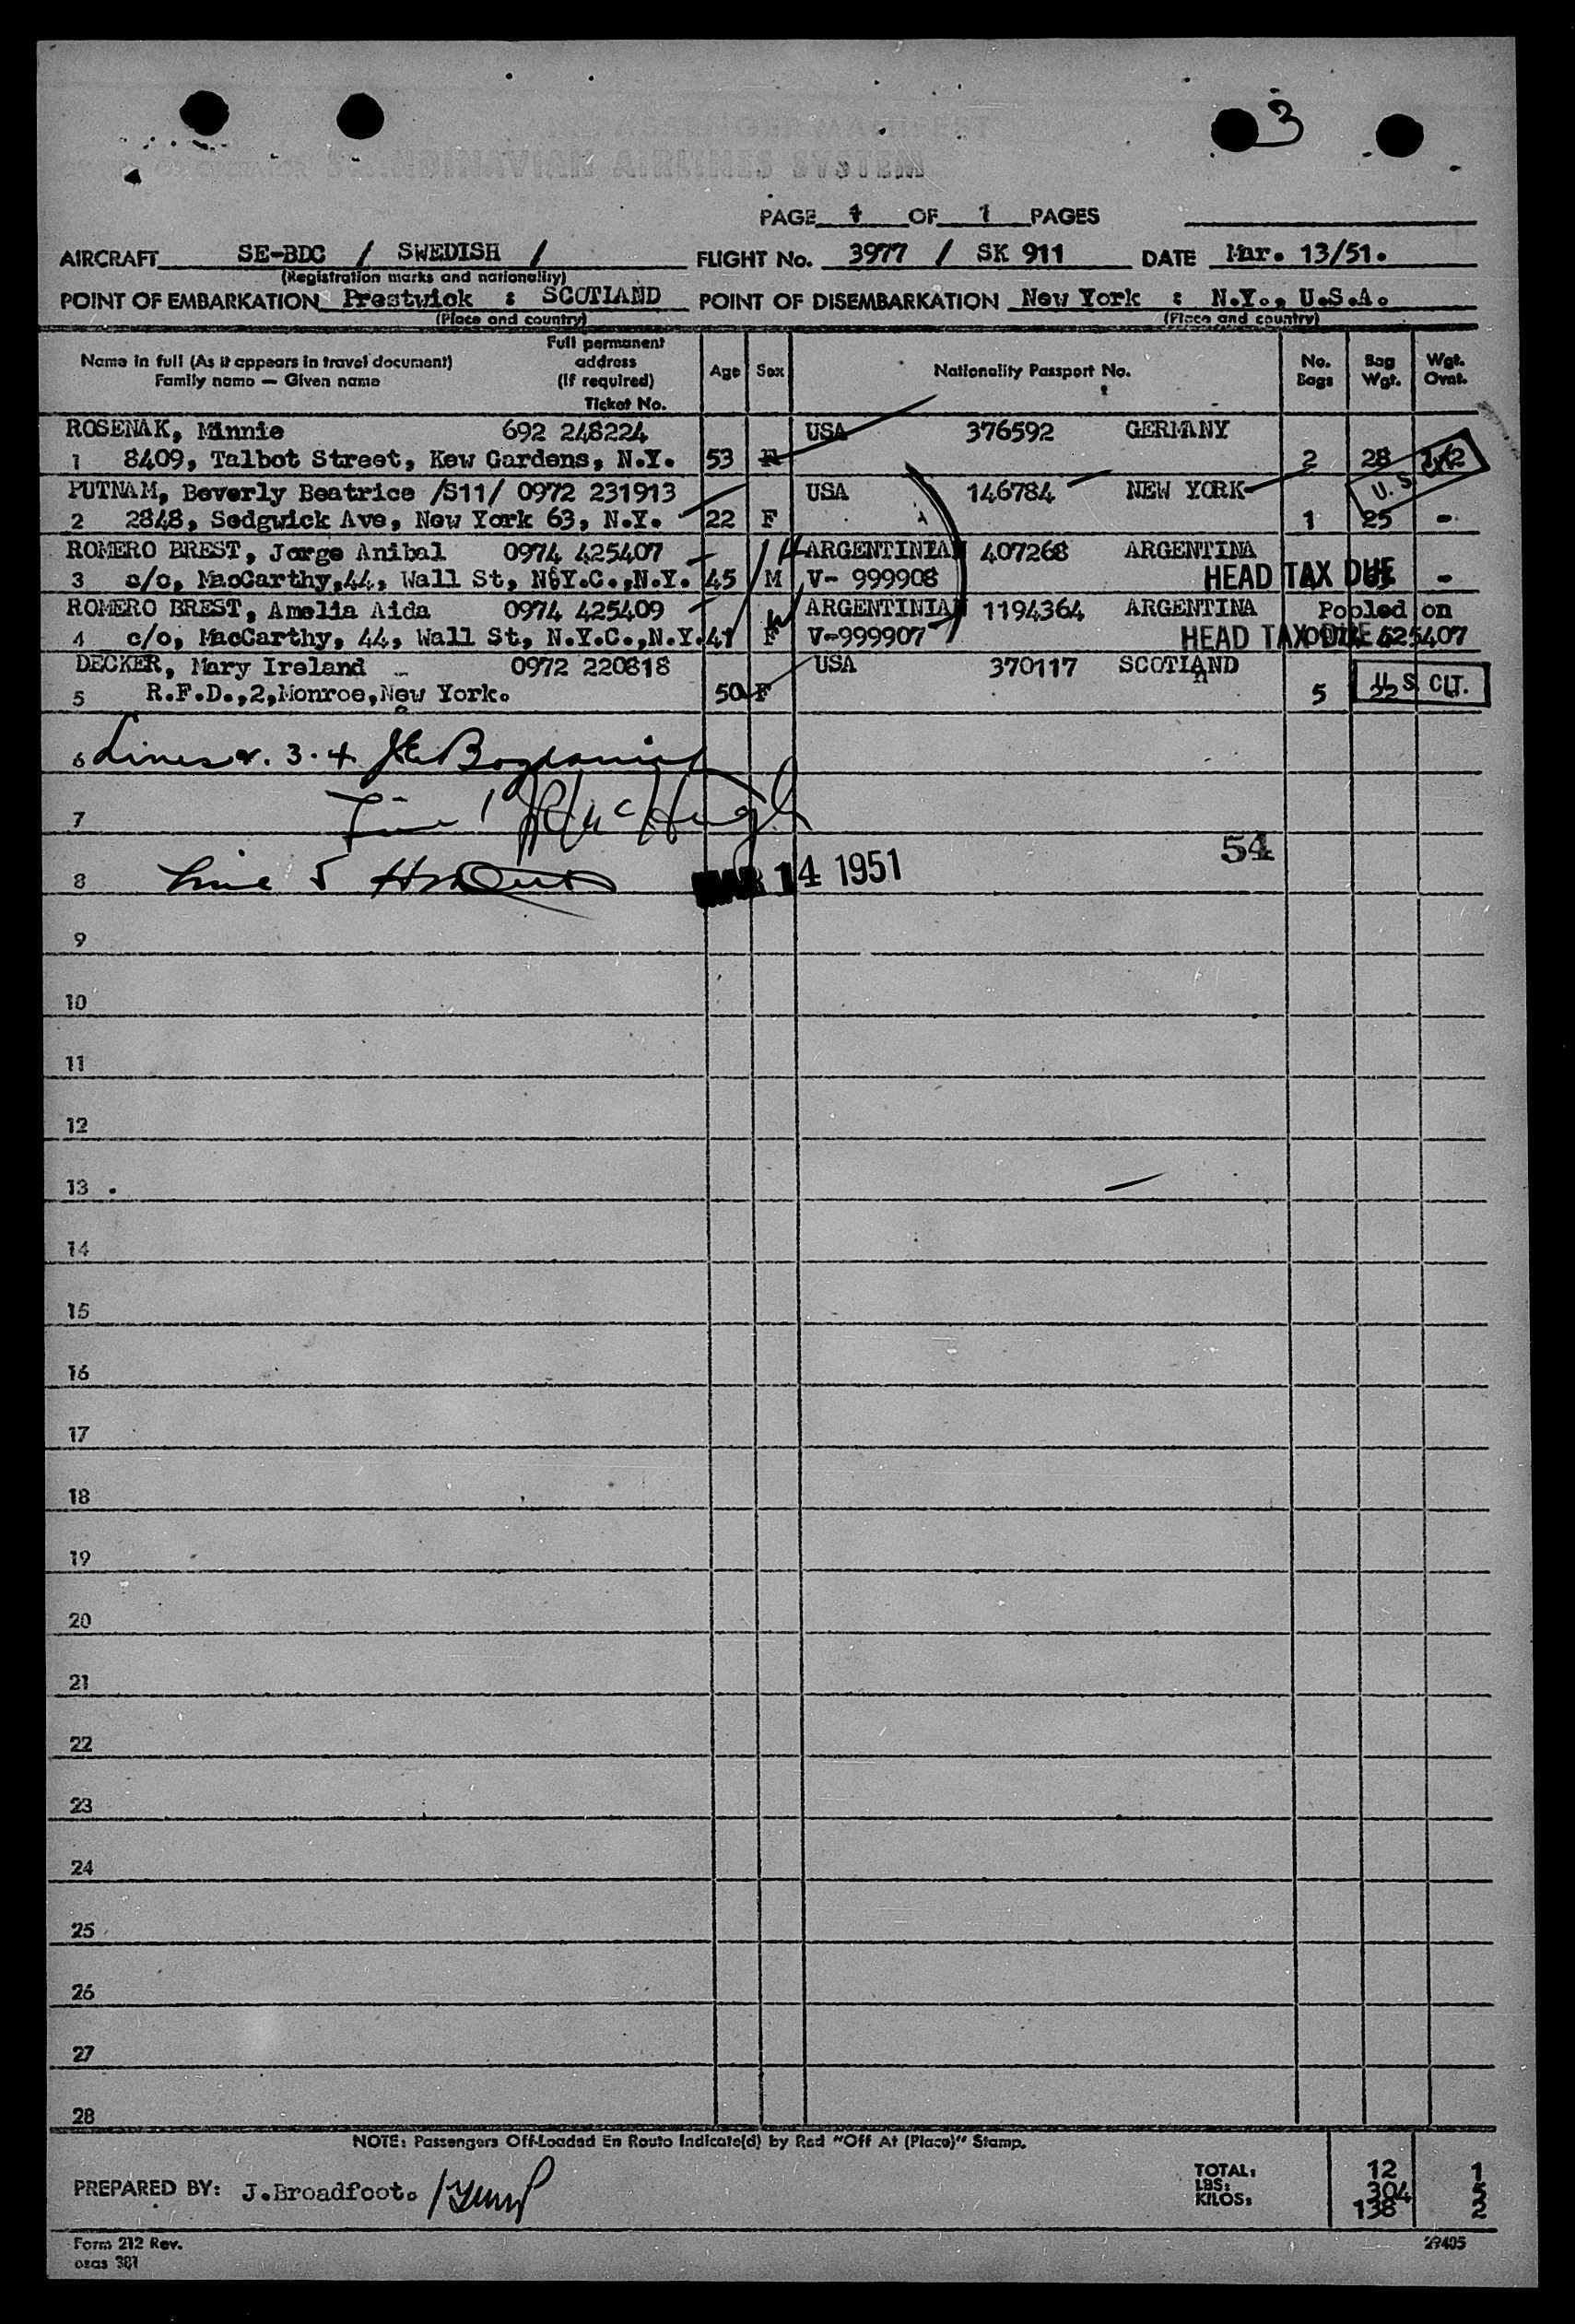 3
PAGE 1 OF 1 PAGES
AIRCRAFT SE-BDC / SWEDISH / FLIGHT No. 3977 / SK 911 DATE Mar. 13/51.
(Registration marks and nationality)
POINT OF EMBARKATION Prestwick : SCOTLAND POINT OF DISEMBARKATION New York : N.Y., U.S.A.
(Place and country) (Place and country)
Name in full (As it appears in travel document) Full permanent address Age Sex Nationality Passport No. No. Bags Bag Wgt. Wgt. Ovnt.
Family name — Given name (If required)
Ticket No.
ROSENAK, Minnie 692 248224 USA 376592 GERMANY
1 8409, Talbot Street, Kew Gardens, N.Y. 53 F 2 28 U. S.
PUTNAM, Beverly Beatrice /S11/ 0972 231913 USA 146784 NEW YORK
2 2848, Sedgwick Ave, New York 63, N.Y. 22 F 1 25 -
ROMERO BREST, Jorge Anibal 0974 425407 ARGENTINIAN 407268 ARGENTINA
3 c/o, MacCarthy,44, Wall St, N.Y.C.,N.Y. 45 M V- 999908 HEAD TAX DUE -
ROMERO BREST, Amelia Aida 0974 425409 ARGENTINIAN 1194364 ARGENTINA Pooled on
4 c/o, MacCarthy, 44, Wall St, N.Y.C.,N.Y. 41 F V-999907 HEAD TAX DUE 425407
DECKER, Mary Ireland 0972 220818 USA 370117 SCOTLAND
5 R.F.D.,2,Monroe,New York. 50 F 5 22 U S CIT.
6 Lines 2. 3. 4
7 Line 1 McHugh
54
8 Line 5
MAR 14 1951
9
10
11
12
13
14
15
16
17
18
19
20
21
22
23
24
25
26
27
28
NOTE: Passengers Off-Loaded En Route Indicate(d) by Red "Off At (Place)" Stamp.
PREPARED BY: J.Broadfoot.
TOTAL: 12 1
LBS: 304 5
KILOS: 138 2
Form 212 Rev. 29405
osas 381